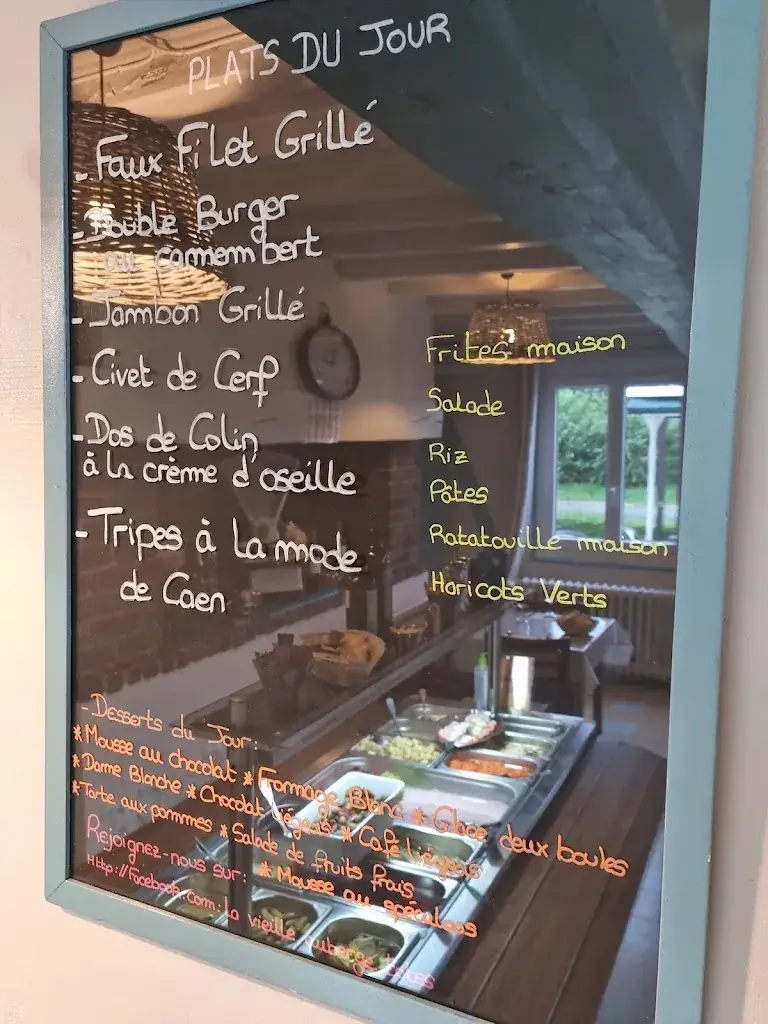 PLATS DU JOUR
- Faux Filet Grillé
- Double Burger
au camembert
- Jambon Grillé
- Civet de Cerf
- Dos de Colin
à la crème d'oseille
- Tripes à la mode
de Caen
Frites maison
Salade
Riz
Pâtes
Ratatouille maison
Haricots Verts
- Desserts du Jour:
* Mousse au chocolat * Fromage Blanc * Glace deux boules
* Dame Blanche * Chocolat liégeois * Café liégeois
* Tarte aux pommes * Salade de fruits frais
* Mousse au spéculoos
Rejoignez-nous sur:
Http://Facebook.com: La vieille auberge